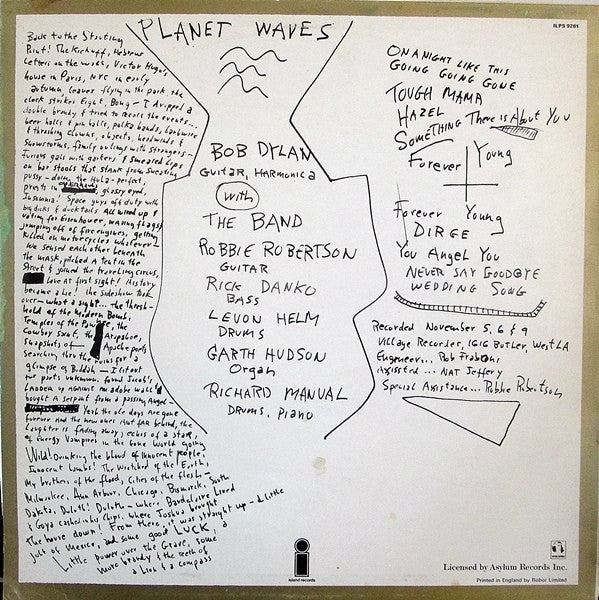 PLANET WAVES
ILPS 9261
Back to the Starting
Point! The Kickoff, Hebrew
Letters on the wall, Victor Hugo's
house in Paris, NYC in early
autumn, leaves flying in the park, the
clock strikes Eight, Bong - I dropped a
double brandy & tried to recall the events...
beer halls & pin balls, polka bands, barbwire
& thrashing clowns, objects, headwinds &
snowstorms, family outings with strangers -
Furious gals with garters & smeared Lips
on bar stools that stank from sweating
pussy - doing the Hula - perfect,
priests in, glassy eyed,
Insomnia! Space guys off duty with
big dicks & ducktails All wired up &
voting for Eisenhower, waving flags &
jumping off of fire engines, getting
killed on motorcycles whatever -
We sensed each other beneath
the mask, pitched a tent in the
Street & joined the traveling circus,
Love at first sight! History
became a Lie! the sideshow took
over - what a sight... the thresh-
hold of the Modern Bomb,
Temples of the Pawnee, the
Cowboy Saint, the Arapahoe,
snapshots of Apache poets
Searching thru the ruins for a
glimpse of Buddah - I lit out
for parts unknown, found Jacob's
Ladder up against an adobe wall &
bought a serpent from a passing Angel -
Yeah the ole days are gone
forever And the new ones Aint far behind, the
Laughter is fading away, echos of a star,
of Energy Vampires in the Gone World going
Wild! Drinking the blood of innocent people,
Innocent Lambs! The Wretched of the Earth,
My brothers of the flood, Cities of the flesh -
Milwaukee, Ann Arbor, Chicago, Bismarck, South
Dakota, Duluth! Duluth - where Baudelaire Lived
& Goya cashed in his Chips, where Joshua brought
The house down! From there, it was straight up - a little
jolt of Mexico, and some good LUCK, a
Little power over the Grave, some
more brandy & the teeth of
a Lion & a compass
BOB DYLAN
GUITAR, HARMONICA
With
THE BAND
ROBBIE ROBERTSON
GUITAR
RICK DANKO
BASS
LEVON HELM
DRUMS
GARTH HUDSON
Organ
RICHARD MANUAL
DRUMS, piano
ON A NIGHT LIKE THIS
GOING GOING GONE
TOUGH MAMA
HAZEL
SOMETHING There is About You
Forever Young
Forever Young
DIRGE
You Angel You
NEVER SAY GOODBYE
WEDDING SONG
Recorded November 5, 6 & 9
Village Recorder, 1616 Butler, West LA
Engineer... Rob Fraboni
Assisted... NAT Jeffery
Special Assistance... Robbie Robertson
island records
Licensed by Asylum Records Inc.
Printed in England by Robor Limited